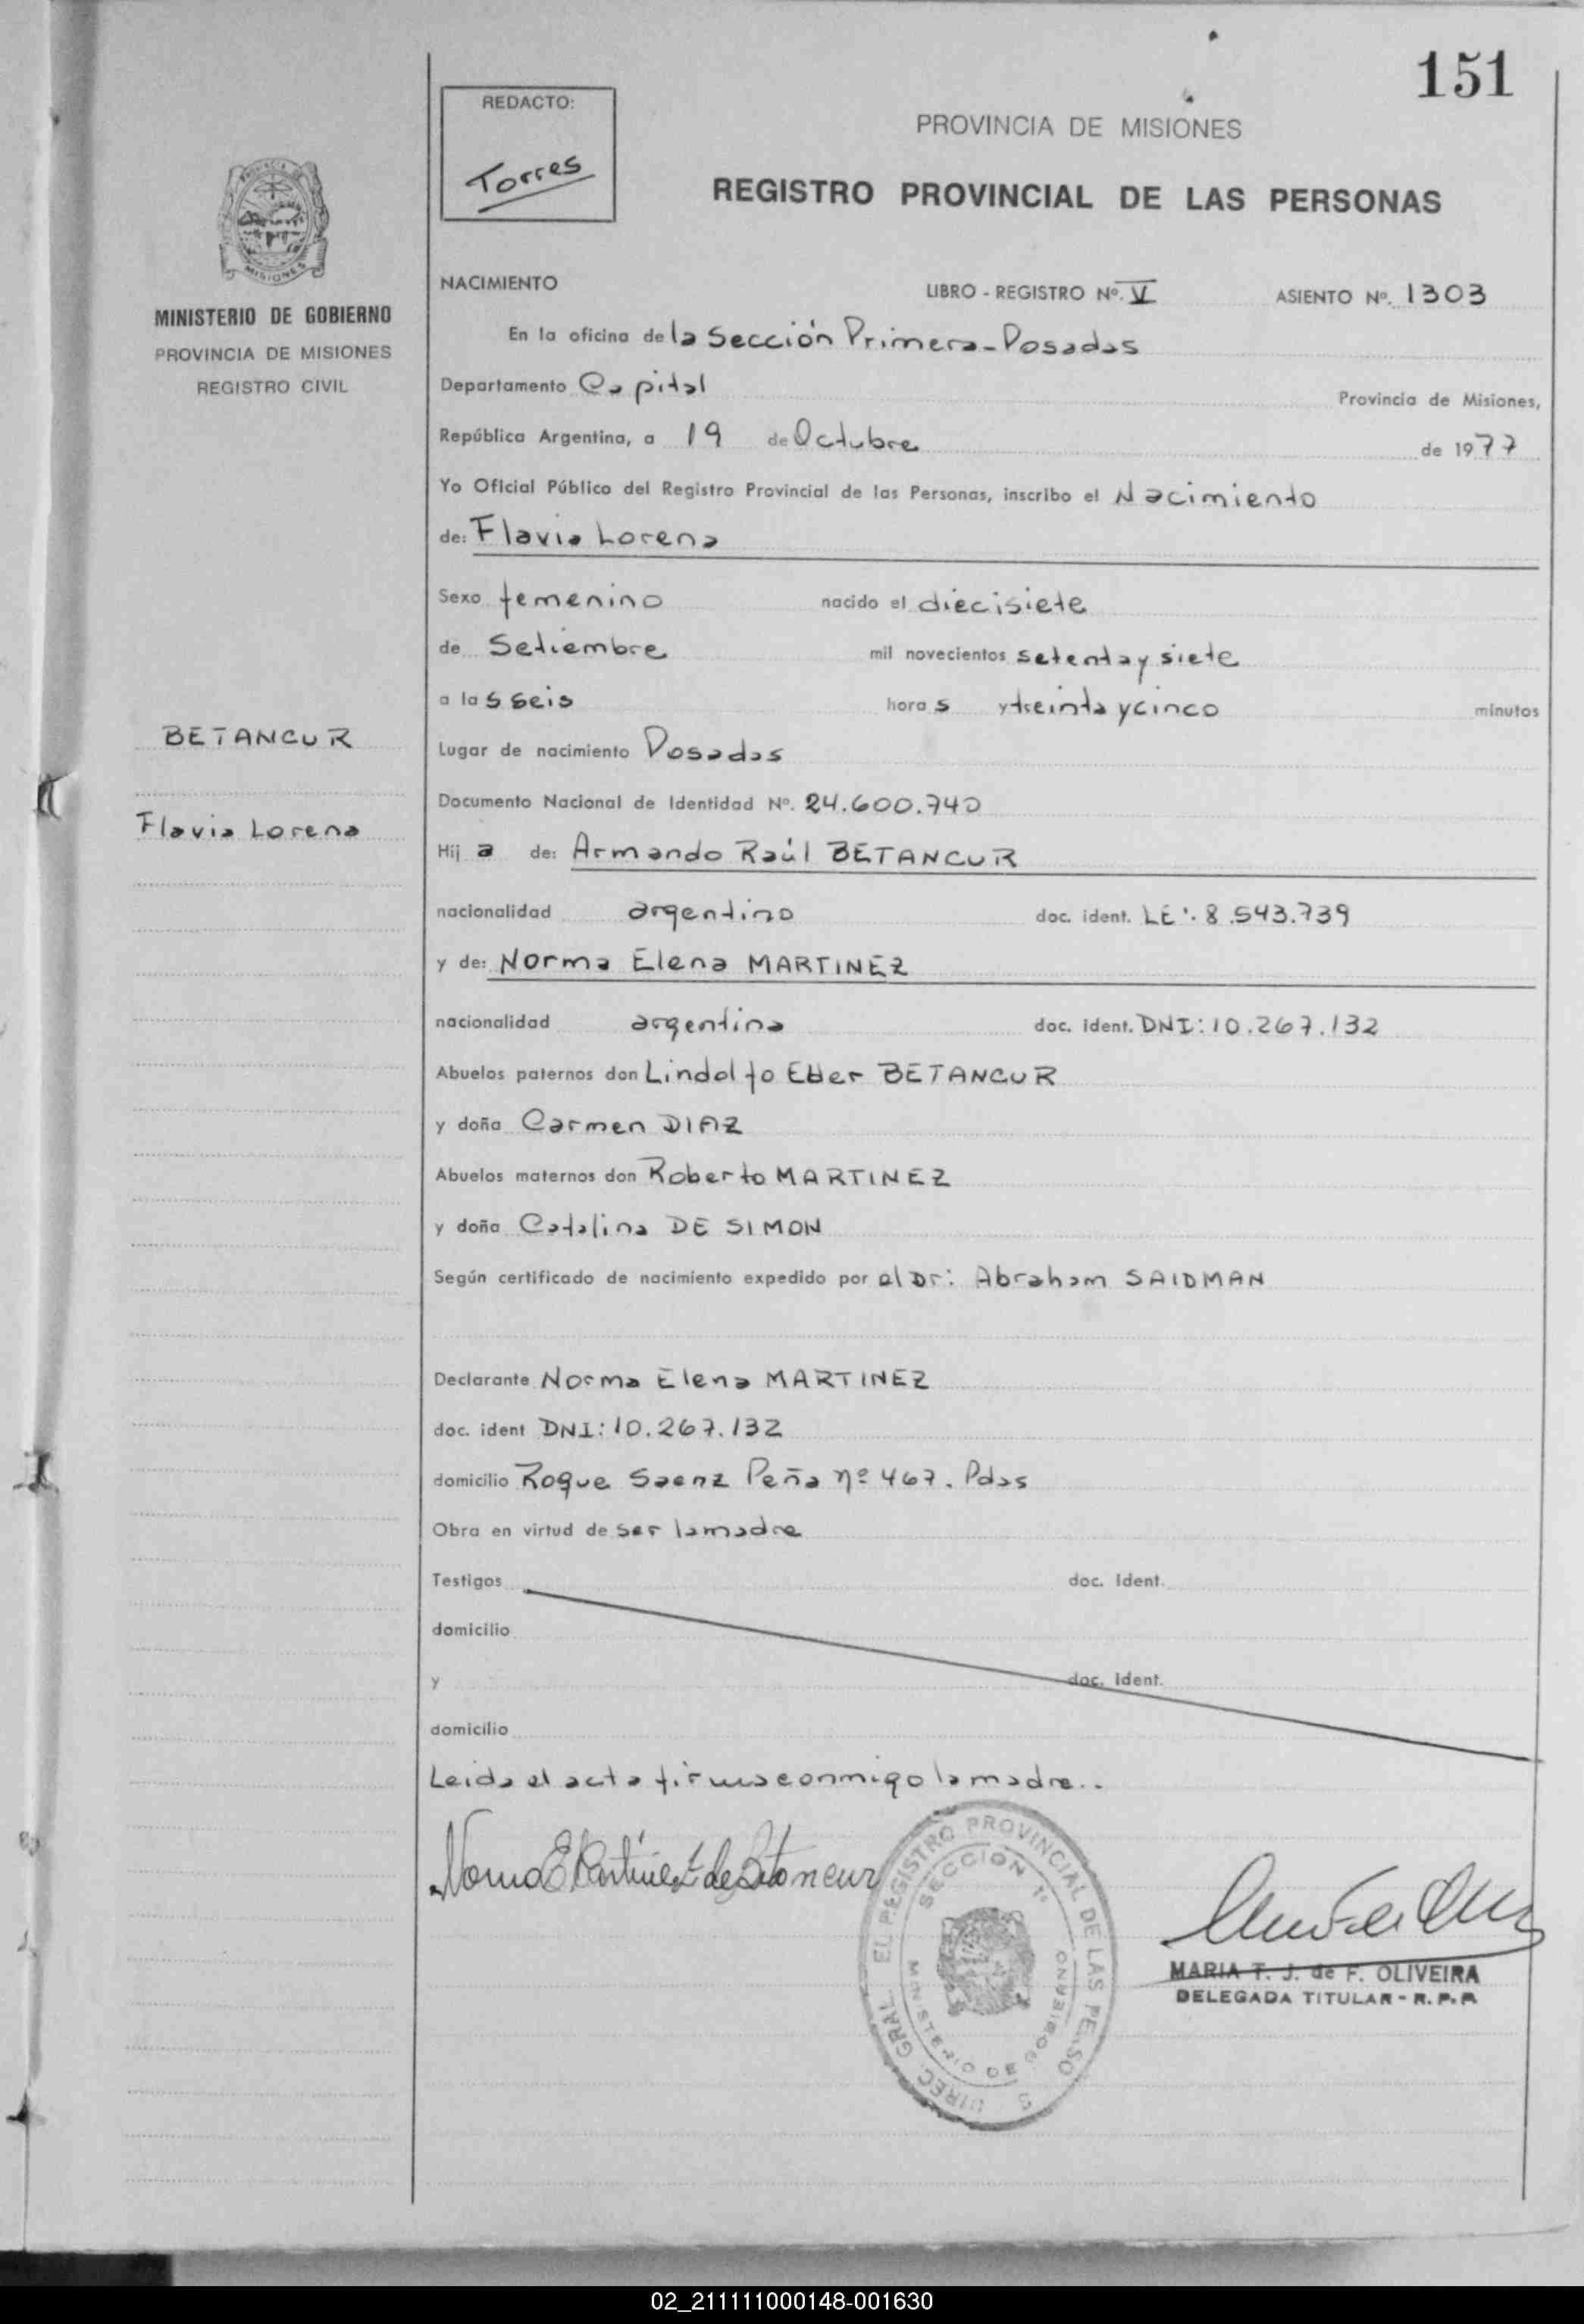 151
REDACTO:
Torres
PROVINCIA DE MISIONES
REGISTRO PROVINCIAL DE LAS PERSONAS
MISIONES
MINISTERIO DE GOBIERNO
PROVINCIA DE MISIONES
REGISTRO CIVIL
BETANCUR
Flavia Lorena
NACIMIENTO LIBRO - REGISTRO Nº. V ASIENTO Nº. 1303
En la oficina de la Sección Primera - Posadas
Departamento Capital Provincia de Misiones,
República Argentina, a 19 de Octubre de 1977
Yo Oficial Público del Registro Provincial de las Personas, inscribo el Nacimiento
de: Flavia Lorena
Sexo femenino nacido el diecisiete
de Setiembre mil novecientos setenta y siete
a las seis horas y treinta y cinco minutos
Lugar de nacimiento Posadas
Documento Nacional de Identidad Nº. 24.600.740
Hija de: Armando Raúl BETANCUR
nacionalidad argentino doc. ident. LE: 8.543.739
y de: Norma Elena MARTINEZ
nacionalidad argentina doc. ident. DNI: 10.267.132
Abuelos paternos don Lindolfo Eber BETANCUR
y doña Carmen DIAZ
Abuelos maternos don Roberto MARTINEZ
y doña Catalina DE SIMON
Según certificado de nacimiento expedido por el Dr: Abraham SAIDMAN
Declarante Norma Elena MARTINEZ
doc. ident DNI: 10.267.132
domicilio Roque Saenz Peña nº 467. Pdas
Obra en virtud de ser la madre
Testigos doc. Ident.
domicilio
y doc. Ident.
domicilio
Leida el acta firma conmigo la madre..
Norma E Martínez de Betancur
EL REGISTRO PROVINCIAL DE LAS PERSO
SECCION 1ª
MINISTERIO DE GOBIERNO
DIREC. GRAL.
MARIA T. J. de F. OLIVEIRA
DELEGADA TITULAR - R. P. P.
02_211111000148-001630